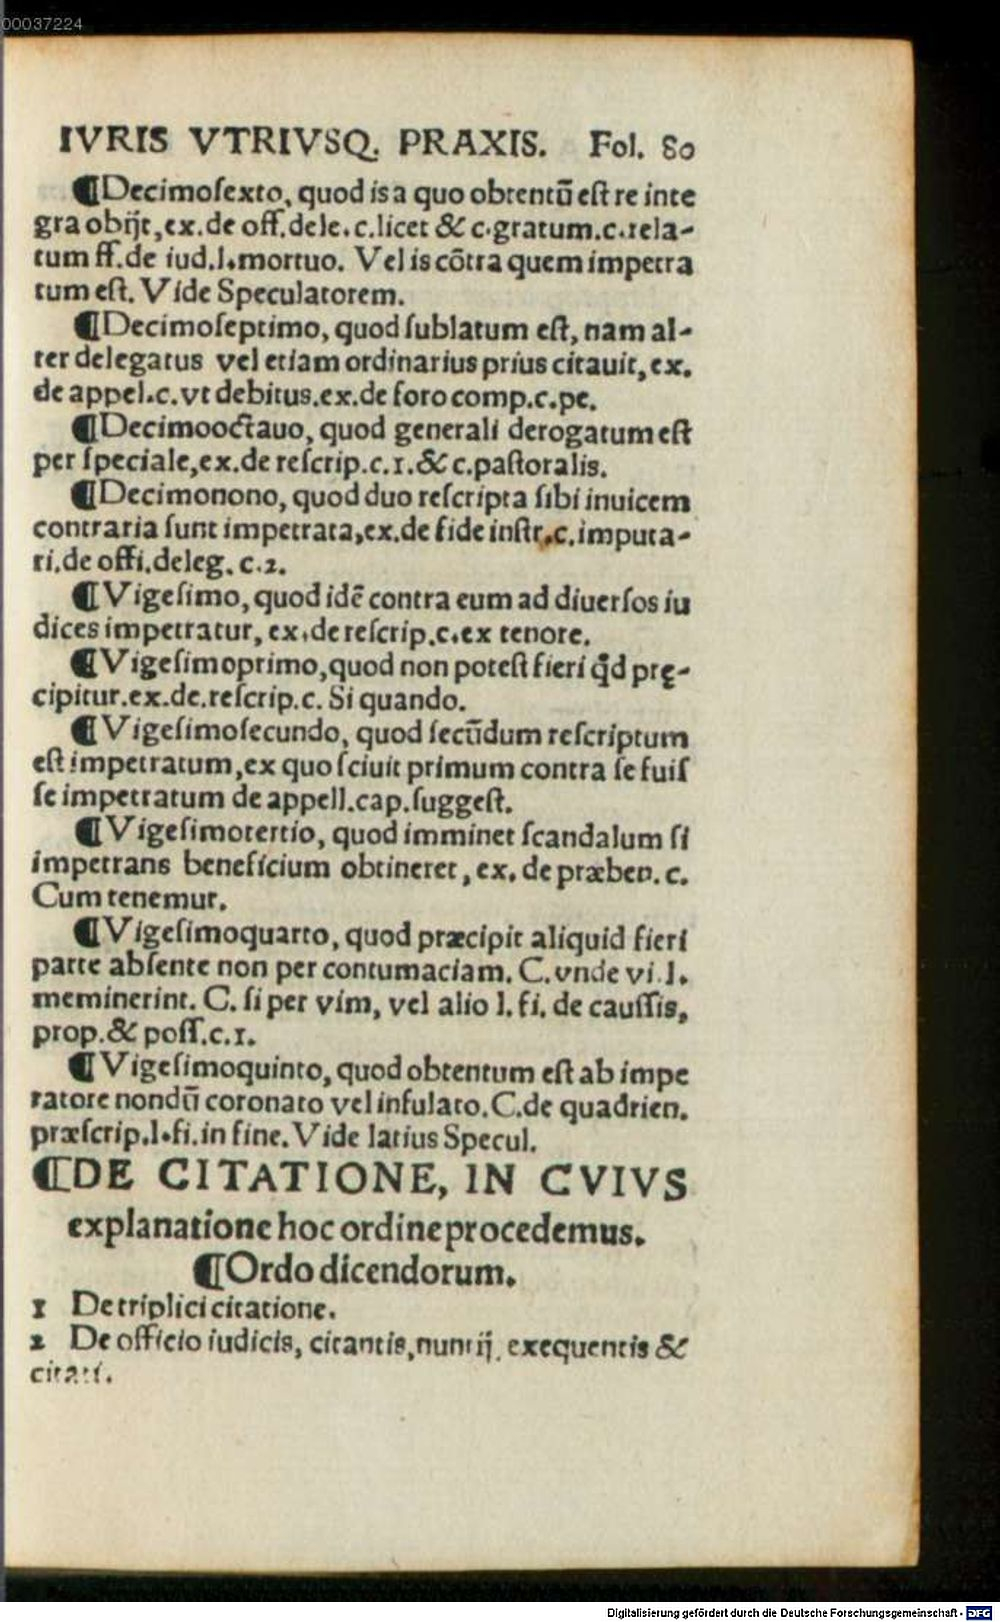 00037224
IVRIS VTRIVSQ. PRAXIS. Fol. 80
¶Decimoſexto, quod is a quo obtentũ eſt re inte
gra obijt, ex. de off. dele. c. licet & c. gratum. c. rela-
tum ff. de iud. l. mortuo. Vel is cõtra quem impetra
tum eſt. Vide Speculatorem.
¶Decimoſeptimo, quod ſublatum eſt, nam al-
ter delegatus vel etiam ordinarius prius citauit, ex.
de appel. c. vt debitus. ex. de foro comp. c. pe.
¶Decimooctauo, quod generali derogatum eſt
per ſpeciale, ex. de reſcrip. c. 1. & c. paſtoralis.
¶Decimonono, quod duo reſcripta ſibi inuicem
contraria ſunt impetrata, ex. de fide inſtr. c. imputa-
ri. de offi. deleg. c. 2.
¶Vigeſimo, quod idẽ contra eum ad diuerſos iu
dices impetratur, ex. de reſcrip. c. ex tenore.
¶Vigeſimoprimo, quod non poteſt fieri q̃d prę-
cipitur. ex. de. reſcrip. c. Si quando.
¶Vigeſimoſecundo, quod ſecũdum reſcriptum
eſt impetratum, ex quo ſciuit primum contra ſe fuiſ
ſe impetratum de appell. cap. ſuggeſt.
¶Vigeſimotertio, quod imminet ſcandalum ſi
impetrans beneficium obtineret, ex. de præben. c.
Cum tenemur.
¶Vigeſimoquarto, quod præcipit aliquid fieri
parte abſente non per contumaciam. C. vnde vi. l.
meminerint. C. ſi per vim, vel alio l. fi. de cauſſis,
prop. & poſſ. c. 1.
¶Vigeſimoquinto, quod obtentum eſt ab impe
ratore nondũ coronato vel infulato. C. de quadrien.
præſcrip. l. fi. in fine. Vide latius Specul.
¶DE CITATIONE, IN CVIVS
explanatione hoc ordine procedemus.
¶Ordo dicendorum.
1 De triplici citatione.
2 De officio iudicis, citantis, nuntij, exequentis &
citati.
Digitalisierung gefördert durch die Deutsche Forschungsgemeinschaft - DFG